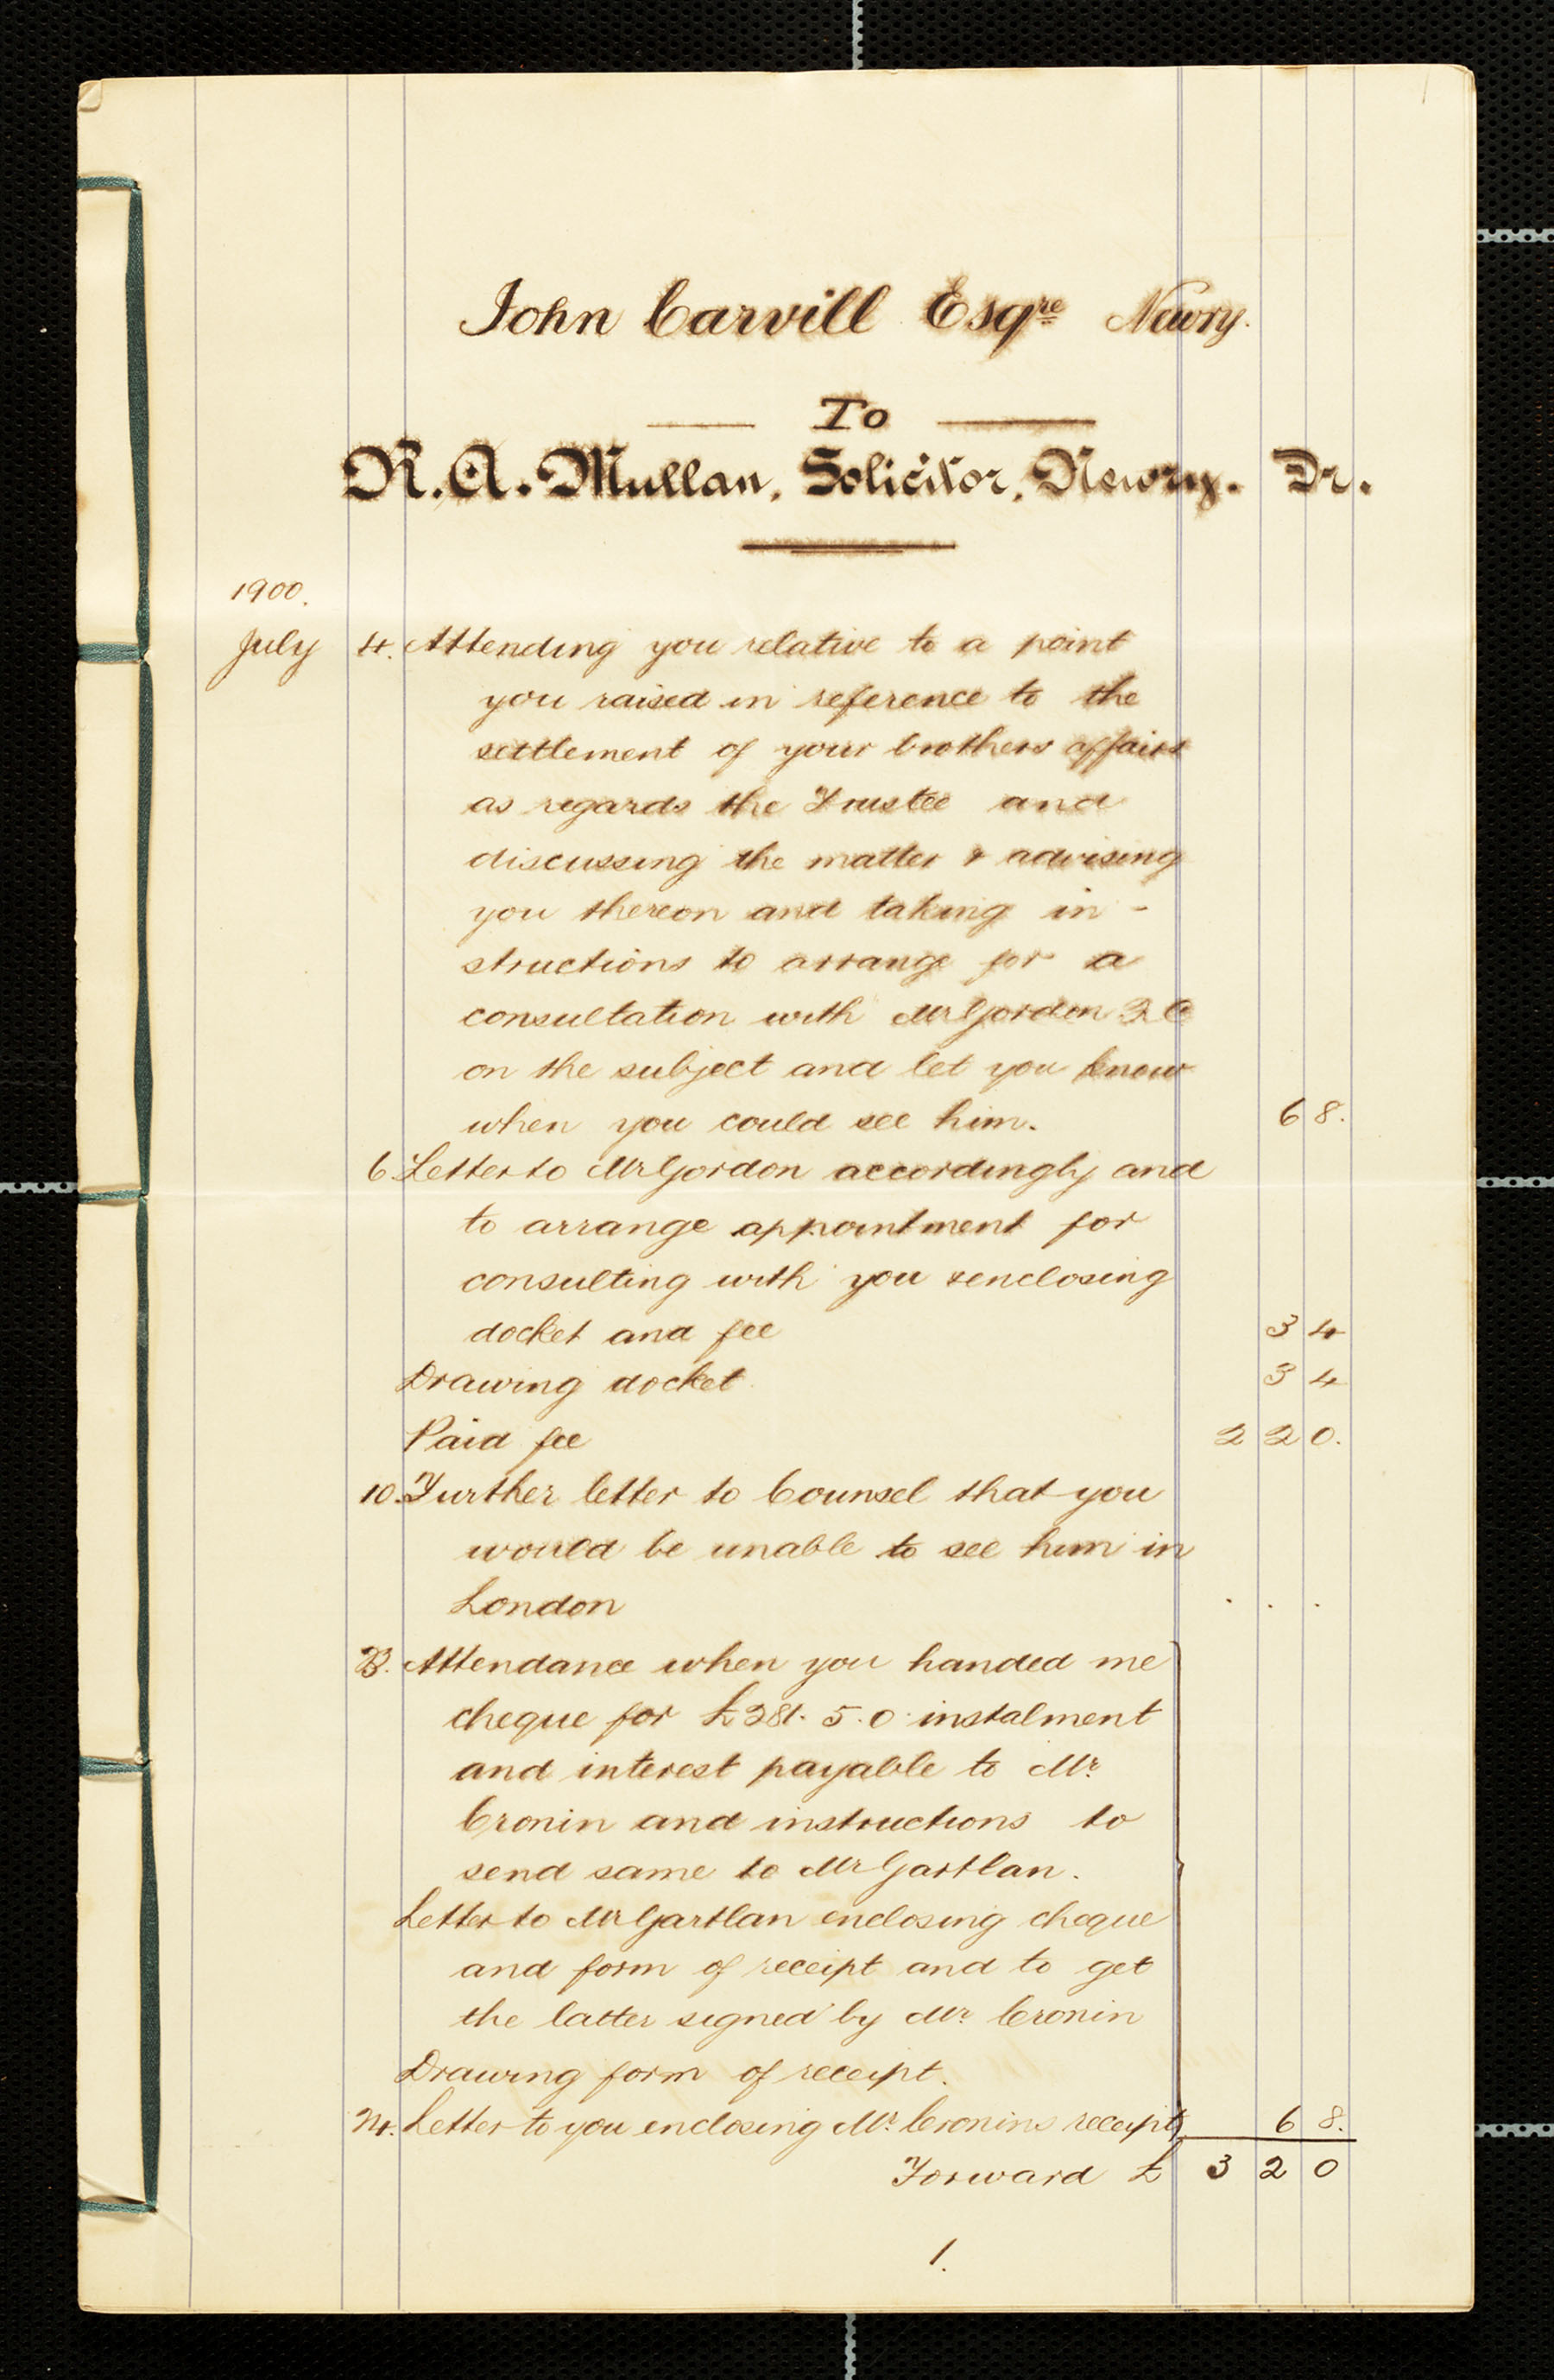 John Carvill Esqre Newry.
To
R. A. Mullan, Solicitor, Newry. Dr.
1900.
July 4. Attending you relative to a point
you raised in reference to the
settlement of your brothers affairs
as regards the Trustee and
discussing the matter & advising
you thereon and taking in-
structions to arrange for a
consultation with Mr Gordon Q C
on the subject and let you know
when you could see him. 6 8.
6 Letter to Mr Gordon accordingly and
to arrange appointment for
consulting with you & enclosing
docket and fee 3 4
Drawing docket. 3 4
Paid fee 2 2 0.
10. Further letter to Counsel that you
would be unable to see him in
London . . .
23. Attendance when you handed me
cheque for £381. 5. 0 instalment
and interest payable to Mr
Cronin and instructions to
send same to Mr Gartlan.
Letter to Mr Gartlan enclosing cheque
and form of receipt and to get
the latter signed by Mr Cronin
Drawing form of receipt.
24. Letter to you enclosing Mr Cronins receipt 6 8.
Forward £ 3 2 0
1.